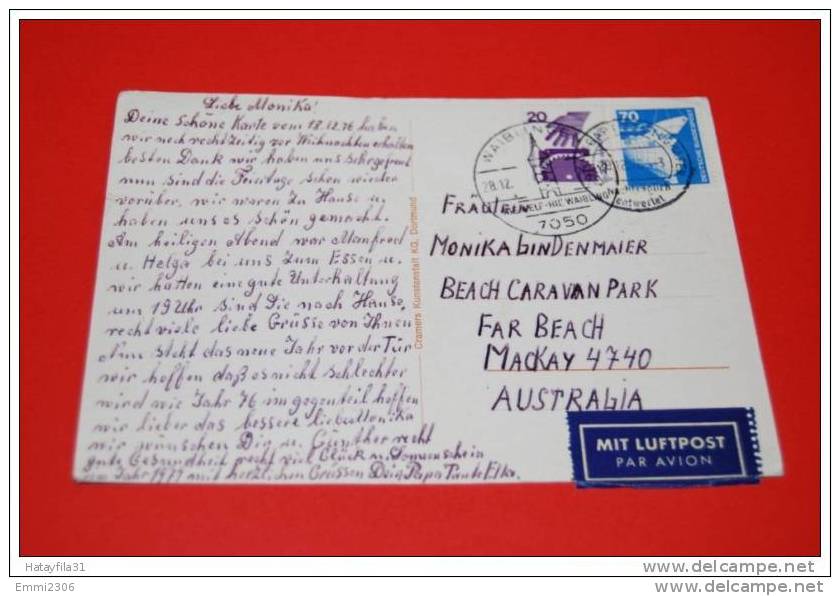 Liebe Monika!
Deine schöne Karte vom 18.12.76 haben
wir noch rechtzeitig vor Weihnachten erhalten
besten Dank wir haben uns sehr gefreut
nun sind die Feiertage schon wieder
vorüber, wir waren zu Hause u.
haben uns es schön gemacht.
Am heiligen Abend war Manfred
u. Helga bei uns zum Essen u.
wir hatten eine gute Unterhaltung
um 19 Uhr sind Die nach Hause,
recht viele liebe Grüsse von Ihnen
Nun steht das neue Jahr vor der Tür
wir hoffen daß es nicht schlechter
wird wie Jahr 76 im gegenteil hoffen
wir lieber das bessere liebe Monika
wir wünschen Dig u. Günther recht
gute Gesundheit recht viel Glück u. Sonnenschein
im Jahr 1977 mit herzlichen Grüssen Dein Papa Tante Elks.
Cramers Kunstanstalt KG, Dortmund
20
70
DEUTSCHE BUNDESPOST
WAIBLINGEN
28.12.
7050
entwertet
FRÄULEIN
MONIKA LINDENMAIER
BEACH CARAVAN PARK
FAR BEACH
MACKAY 4740
AUSTRALIA
MIT LUFTPOST
PAR AVION
Hatayfila31
www.delcampe.net
Emmi2306
www.delcampe.net